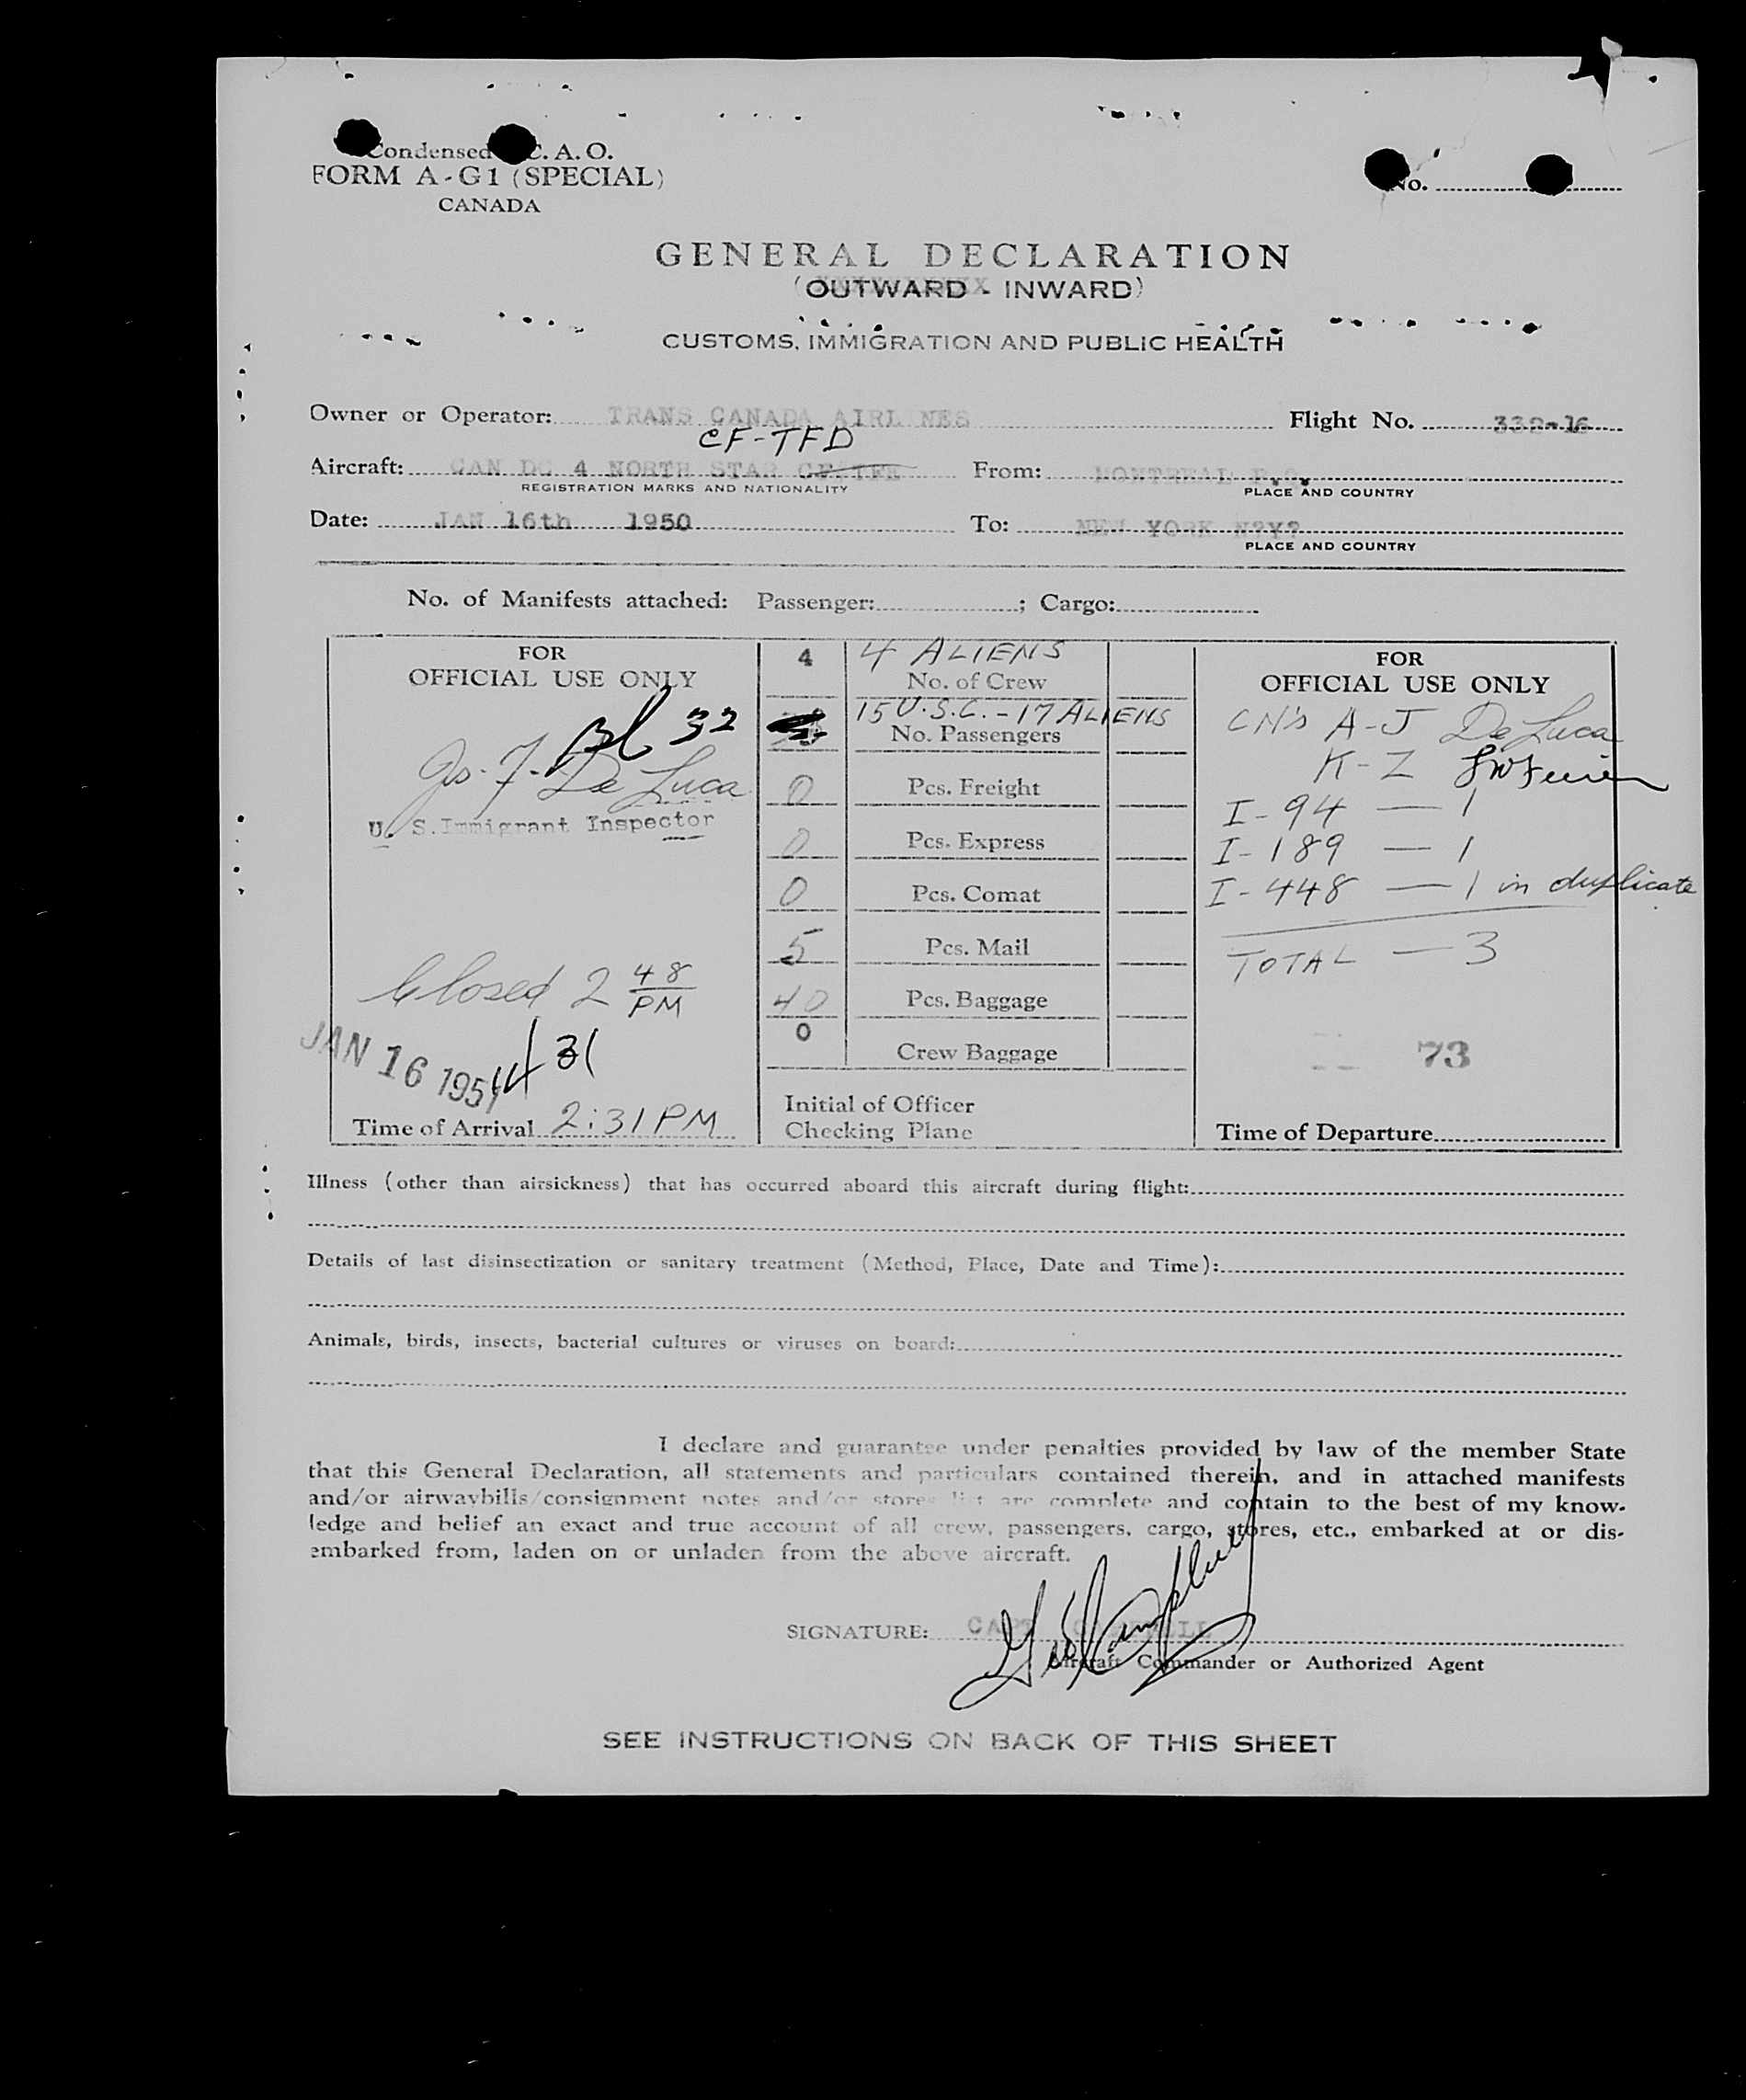 Condensed C. A. O.
FORM A-G1 (SPECIAL)
CANADA
No.
GENERAL DECLARATION
(OUTWARD - INWARD)
CUSTOMS, IMMIGRATION AND PUBLIC HEALTH
Owner or Operator: TRANS CANADA AIRLINES Flight No.
CF-TFD
Aircraft: CAN DC 4 NORTH STAR From: MONTREAL P.Q.
REGISTRATION MARKS AND NATIONALITY PLACE AND COUNTRY
Date: JAN 16th 1950 To: NEW YORK N?Y?
PLACE AND COUNTRY
No. of Manifests attached: Passenger: ; Cargo:
FOR
OFFICIAL USE ONLY
32
De Luca
U. S. Immigrant Inspector
Closed 2 48
PM
JAN 16 195
31
Time of Arrival 2:31 PM
4 4 ALIENS
No. of Crew
15 U.S.C. - 17 ALIENS
No. Passengers
0 Pcs. Freight
0 Pcs. Express
0 Pcs. Comat
5 Pcs. Mail
40 Pcs. Baggage
0 Crew Baggage
Initial of Officer
Checking Plane
FOR
OFFICIAL USE ONLY
CN's A-J De Luca
K-Z
I-94 — 1
I-189 — 1
I-448 — 1 in duplicate
TOTAL — 3
73
Time of Departure
Illness (other than airsickness) that has occurred aboard this aircraft during flight:
Details of last disinsectization or sanitary treatment (Method, Place, Date and Time):
Animals, birds, insects, bacterial cultures or viruses on board:
I declare and guarantee under penalties provided by law of the member State
that this General Declaration, all statements and particulars contained therein, and in attached manifests
and/or airwaybills/consignment notes and/or stores list are complete and contain to the best of my know-
ledge and belief an exact and true account of all crew, passengers, cargo, stores, etc., embarked at or dis-
embarked from, laden on or unladen from the above aircraft.
SIGNATURE: CAPT CAMPBELL
Geo Campbell
Aircraft Commander or Authorized Agent
SEE INSTRUCTIONS ON BACK OF THIS SHEET